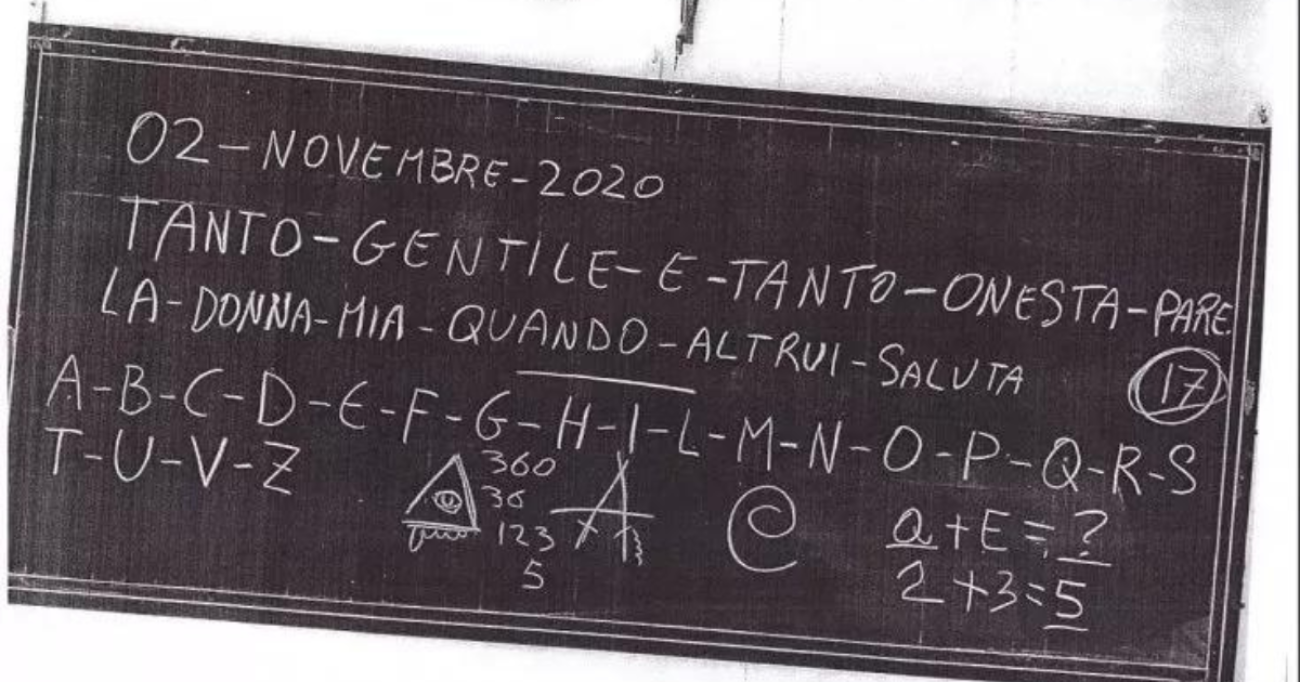 02-NOVEMBRE-2020
TANTO-GENTILE-E-TANTO-ONESTA-PARE
LA-DONNA-MIA-QUANDO-ALTRUI-SALUTA
17
A-B-C-D-E-F-G-H-I-L-M-N-O-P-Q-R-S
T-U-V-Z
360
36
123
5
Q+E=?
2+3=5